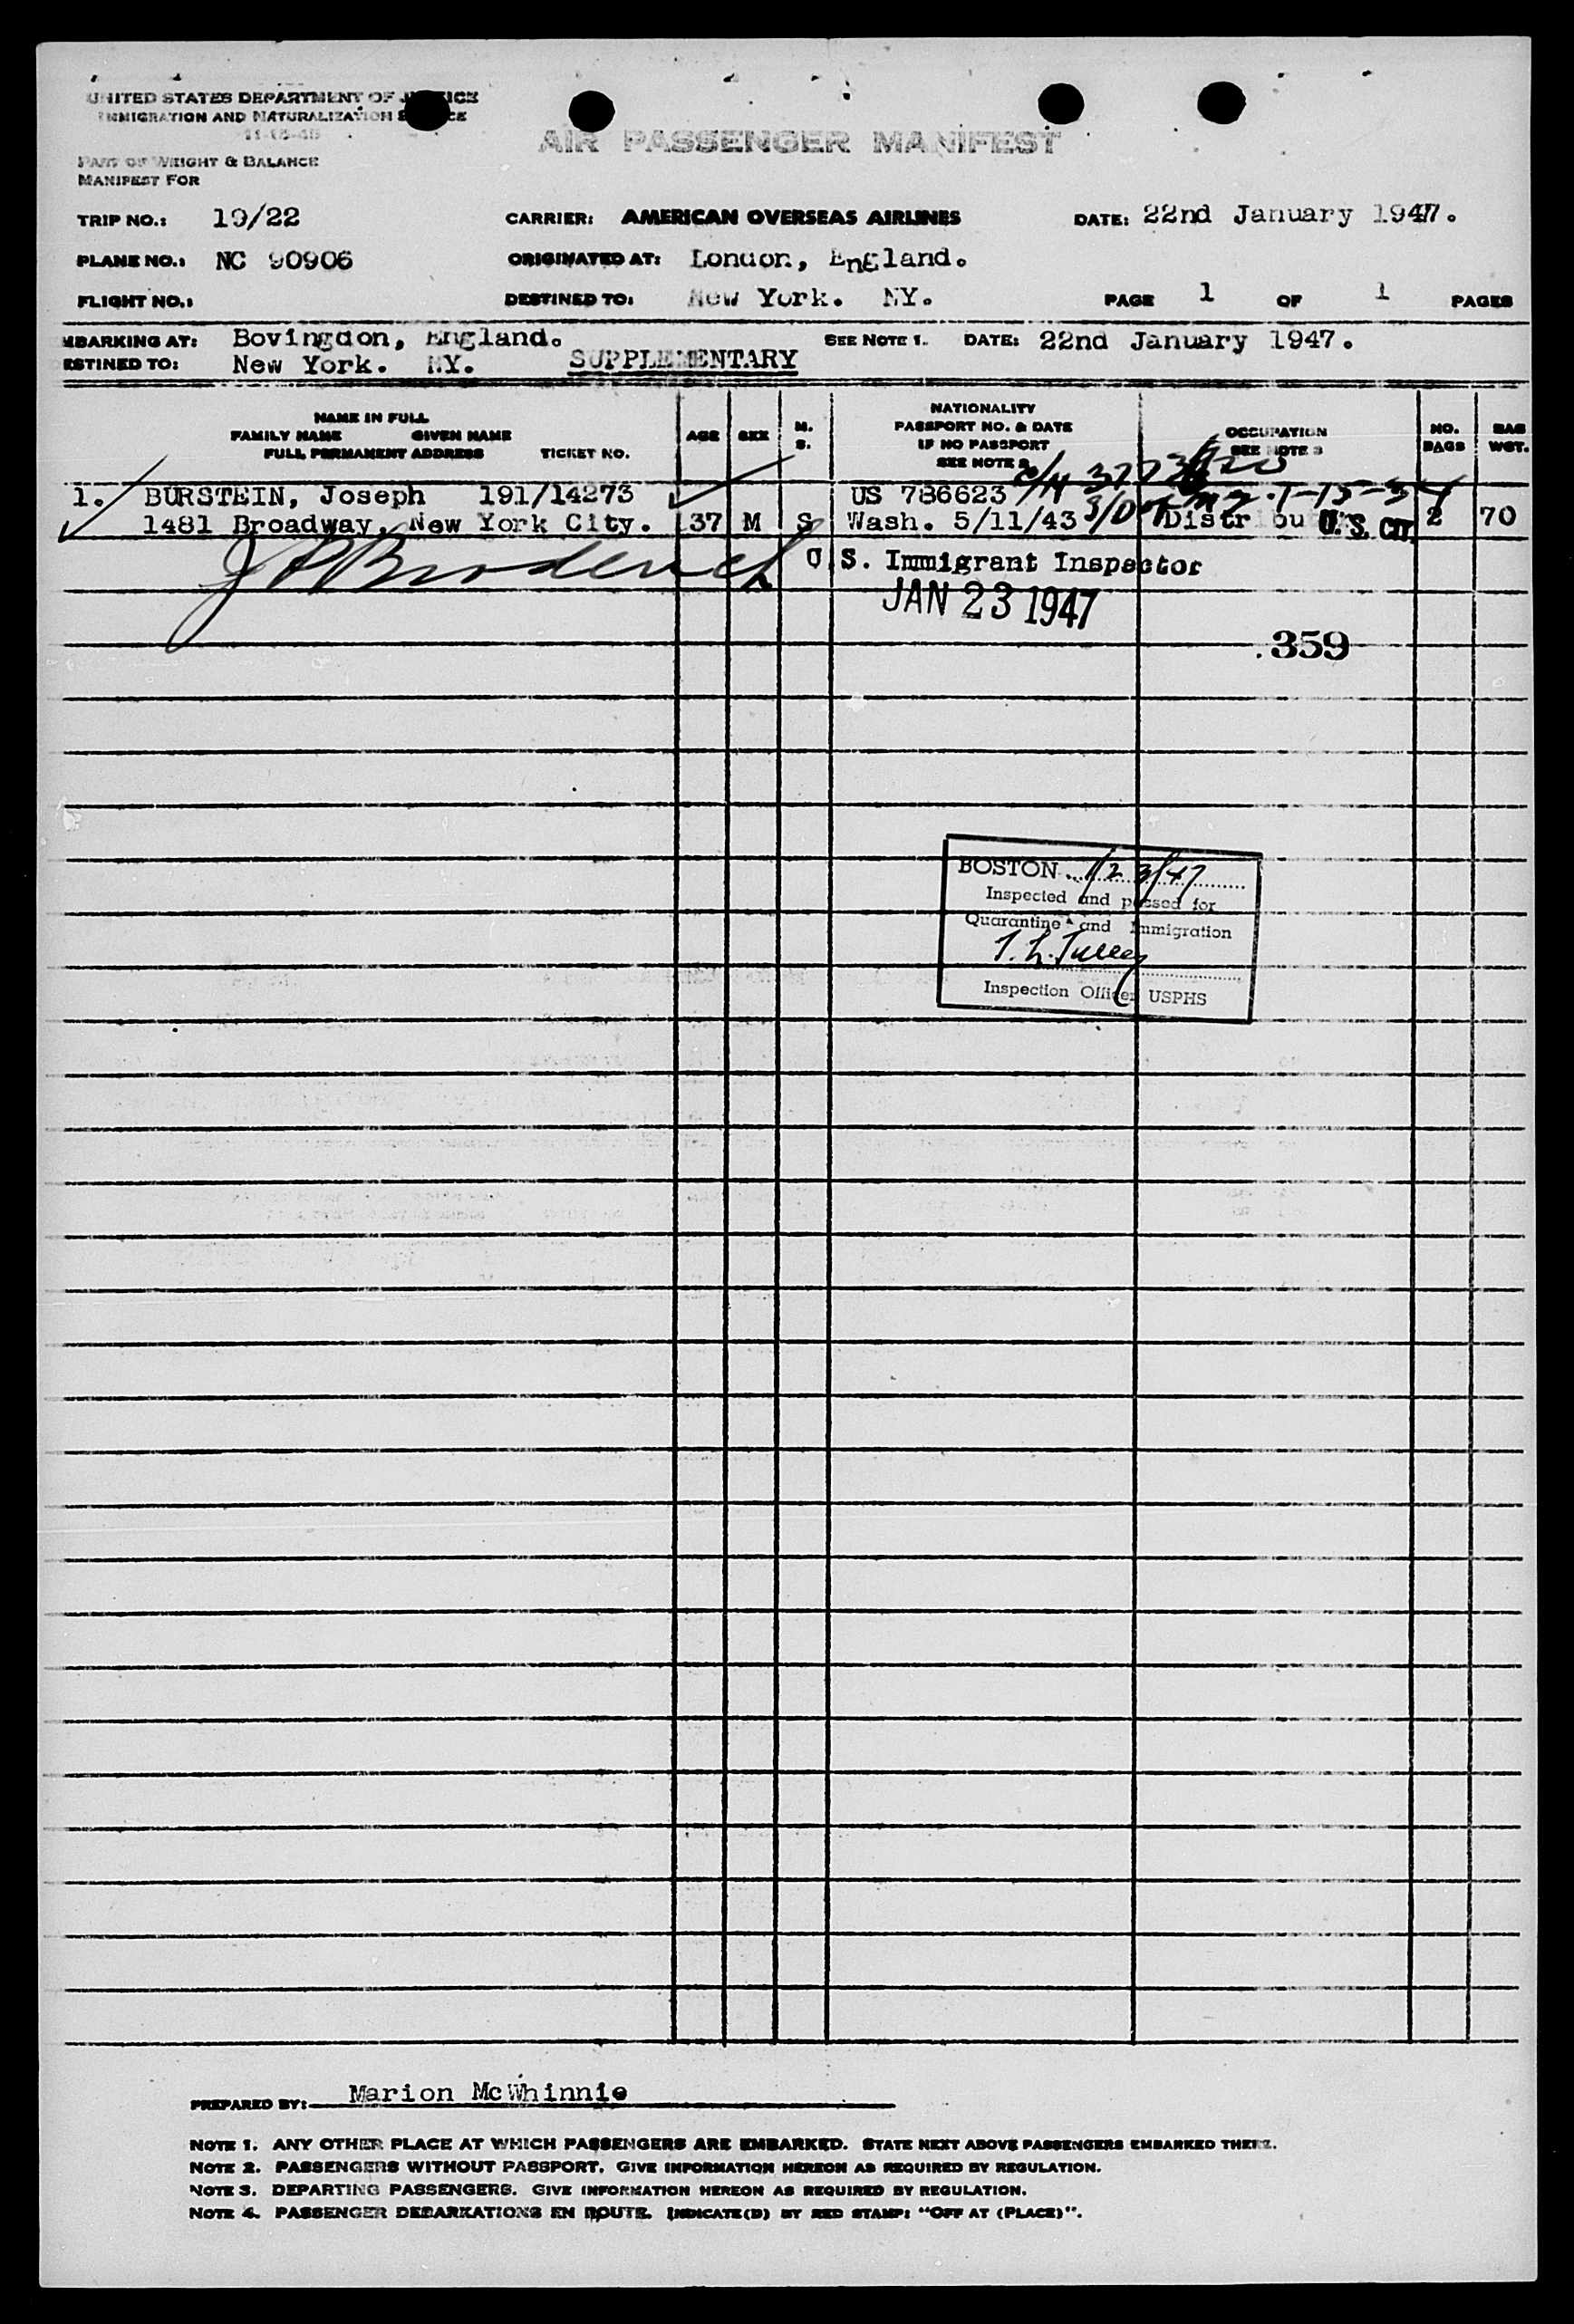 UNITED STATES DEPARTMENT OF
IMMIGRATION AND NATURALIZATION
AIR PASSENGER MANIFEST
PART OF WEIGHT & BALANCE
MANIFEST FOR
TRIP NO.: 19/22 CARRIER: AMERICAN OVERSEAS AIRLINES DATE: 22nd January 1947.
PLANE NO.: NC 90906 ORIGINATED AT: London, England.
FLIGHT NO.: DESTINED TO: New York. NY. PAGE 1 OF 1 PAGES
MBARKING AT: Bovingdon, England. SEE NOTE 1. DATE: 22nd January 1947.
ESTINED TO: New York. NY. SUPPLEMENTARY
NAME IN FULL
FAMILY NAME GIVEN NAME
FULL PERMANENT ADDRESS TICKET NO.
AGE SEX M. S.
NATIONALITY
PASSPORT NO. & DATE
IF NO PASSPORT
SEE NOTE 2
OCCUPATION
SEE NOTE 3
NO. BAGS
BAG WGT.
1. BURSTEIN, Joseph 191/14273 US 786623
1481 Broadway, New York City. 37 M S Wash. 5/11/43 Distribu U.S. CIT. 2 70
U.S. Immigrant Inspector
JAN 23 1947
359
BOSTON 1/23/47
Inspected and passed for
Quarantine and Immigration
Inspection Officer USPHS
PREPARED BY: Marion McWhinnie
NOTE 1. ANY OTHER PLACE AT WHICH PASSENGERS ARE EMBARKED. STATE NEXT ABOVE PASSENGERS EMBARKED THERE.
NOTE 2. PASSENGERS WITHOUT PASSPORT. GIVE INFORMATION HEREON AS REQUIRED BY REGULATION.
NOTE 3. DEPARTING PASSENGERS. GIVE INFORMATION HEREON AS REQUIRED BY REGULATION.
NOTE 4. PASSENGER DEBARKATIONS EN ROUTE. INDICATE(D) BY RED STAMP: "OFF AT (PLACE)".